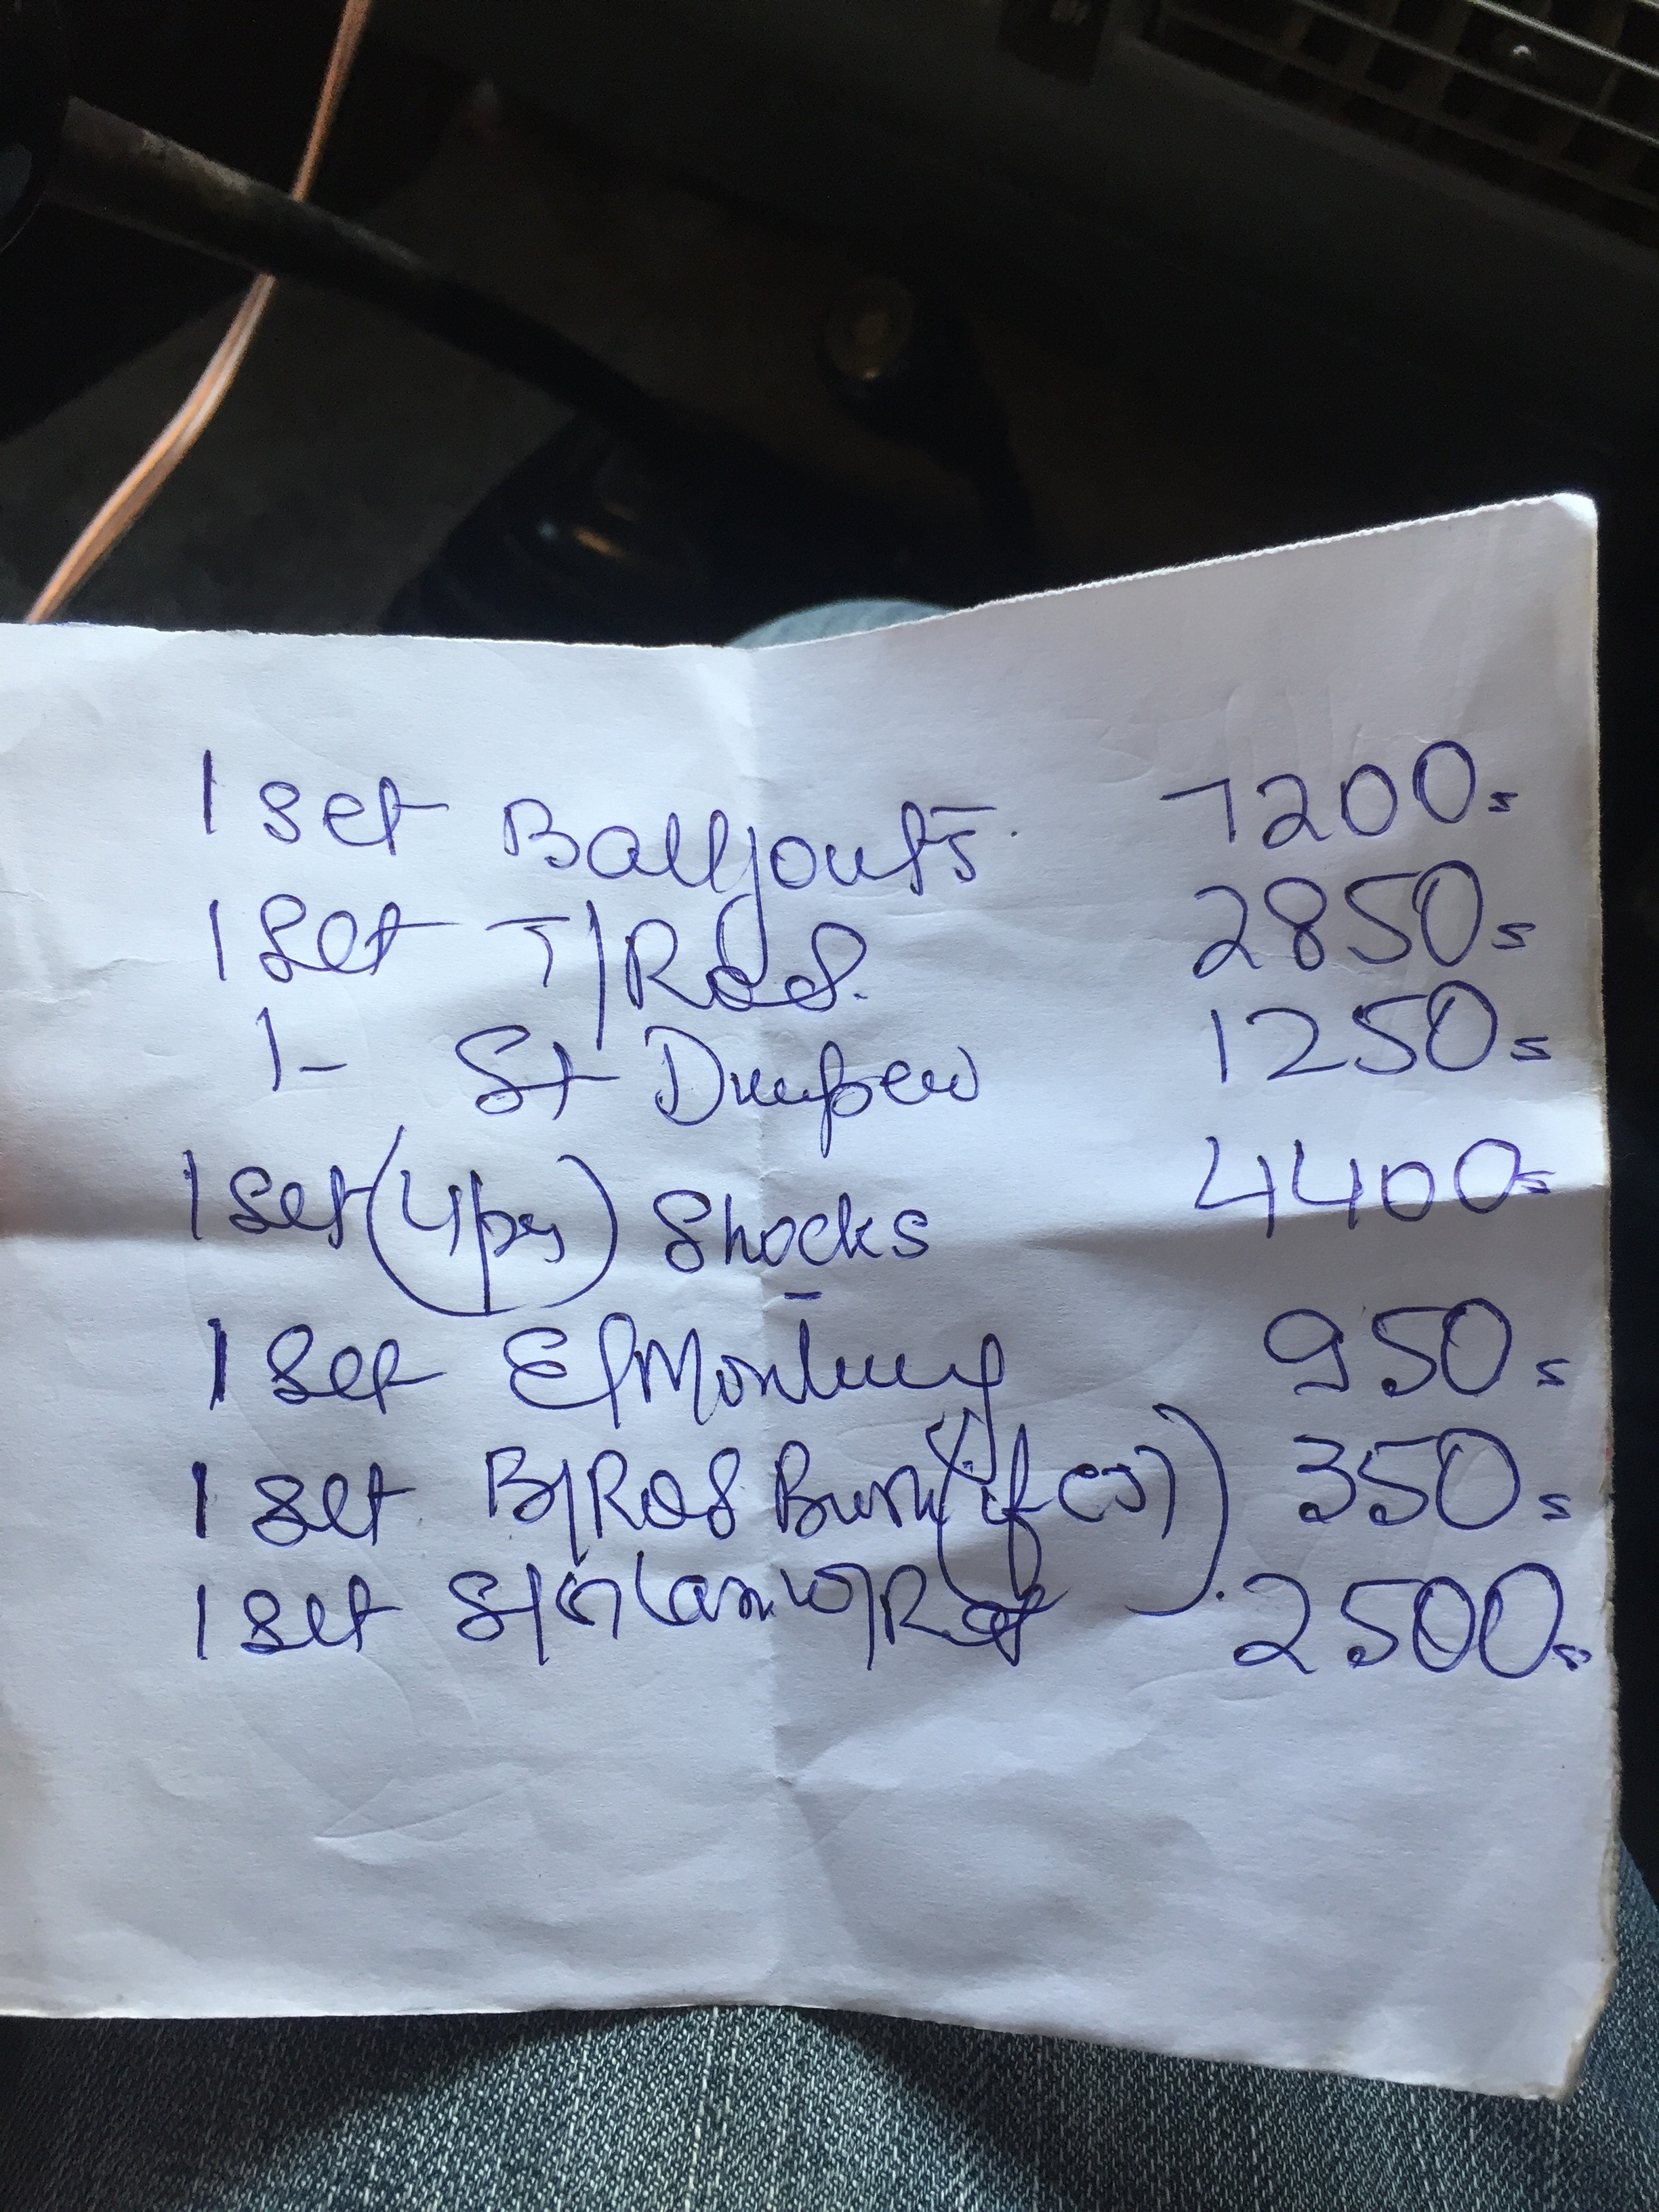 1 set Balljoints. 7200=
1 Set T/Rod. 2850=
1- St Dumper 1250=
1 Set (4 pcs) Shocks 4400=
1 Set E/Monting 950=
1 set B/Rod Bush 350=
1 set 2500=